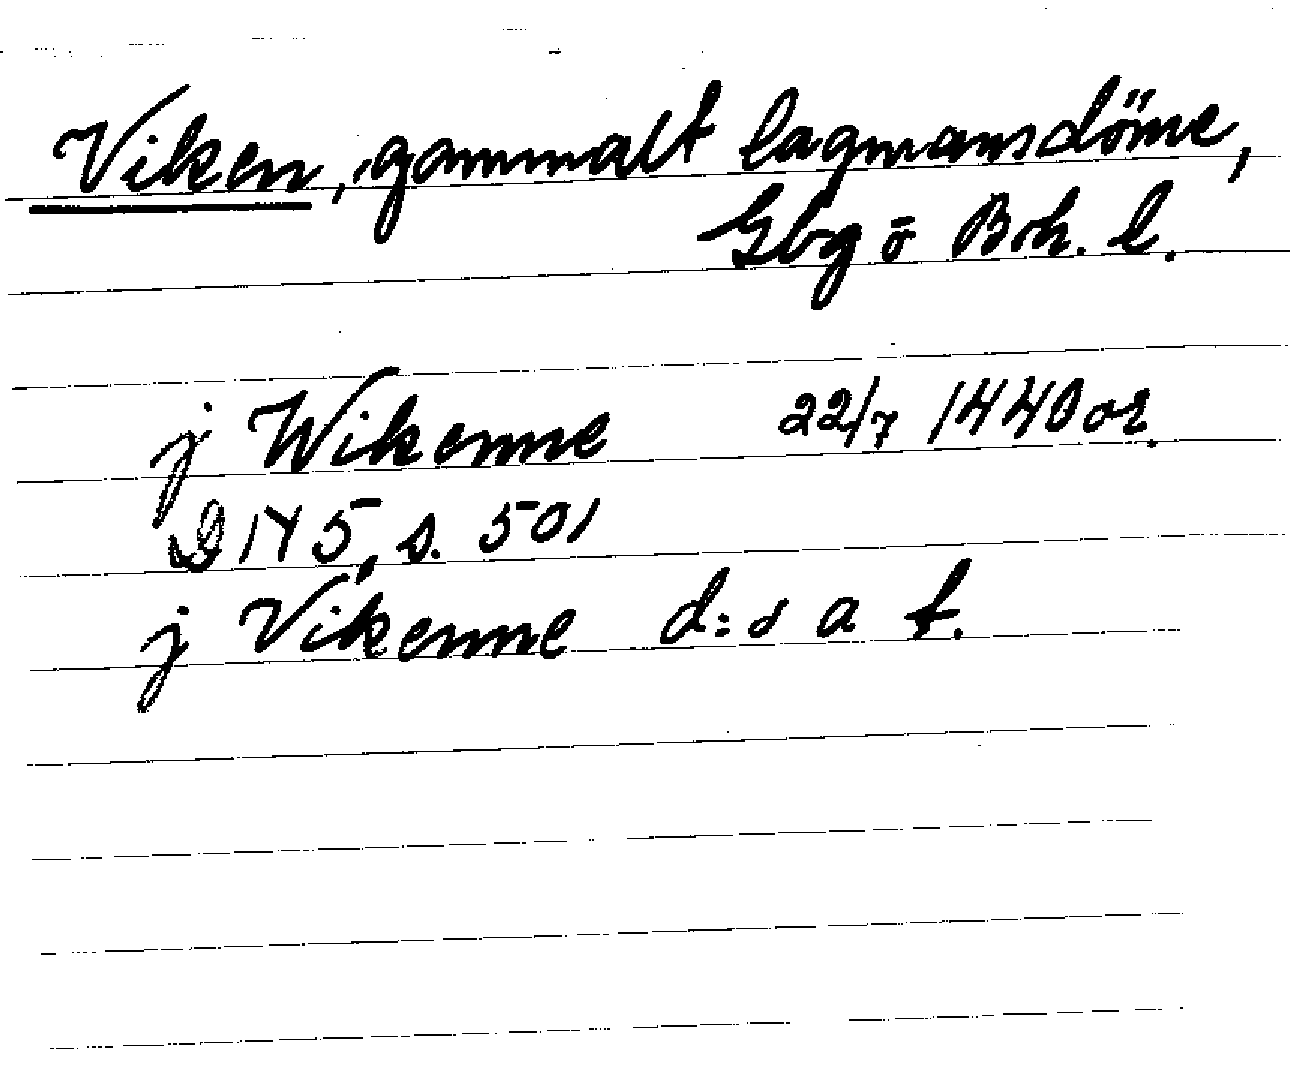 Viken, gammalt lagmansdöme,
Gbg o Boh. l.
j Wikenne 22/7 1440 or.
DN 5, s. 501
j Vikenne d:o a t.